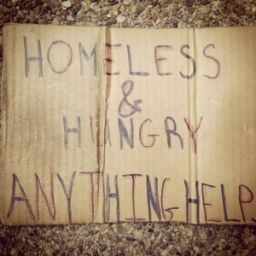 HOMELESS
&
HUNGRY
ANYTHING HELP.